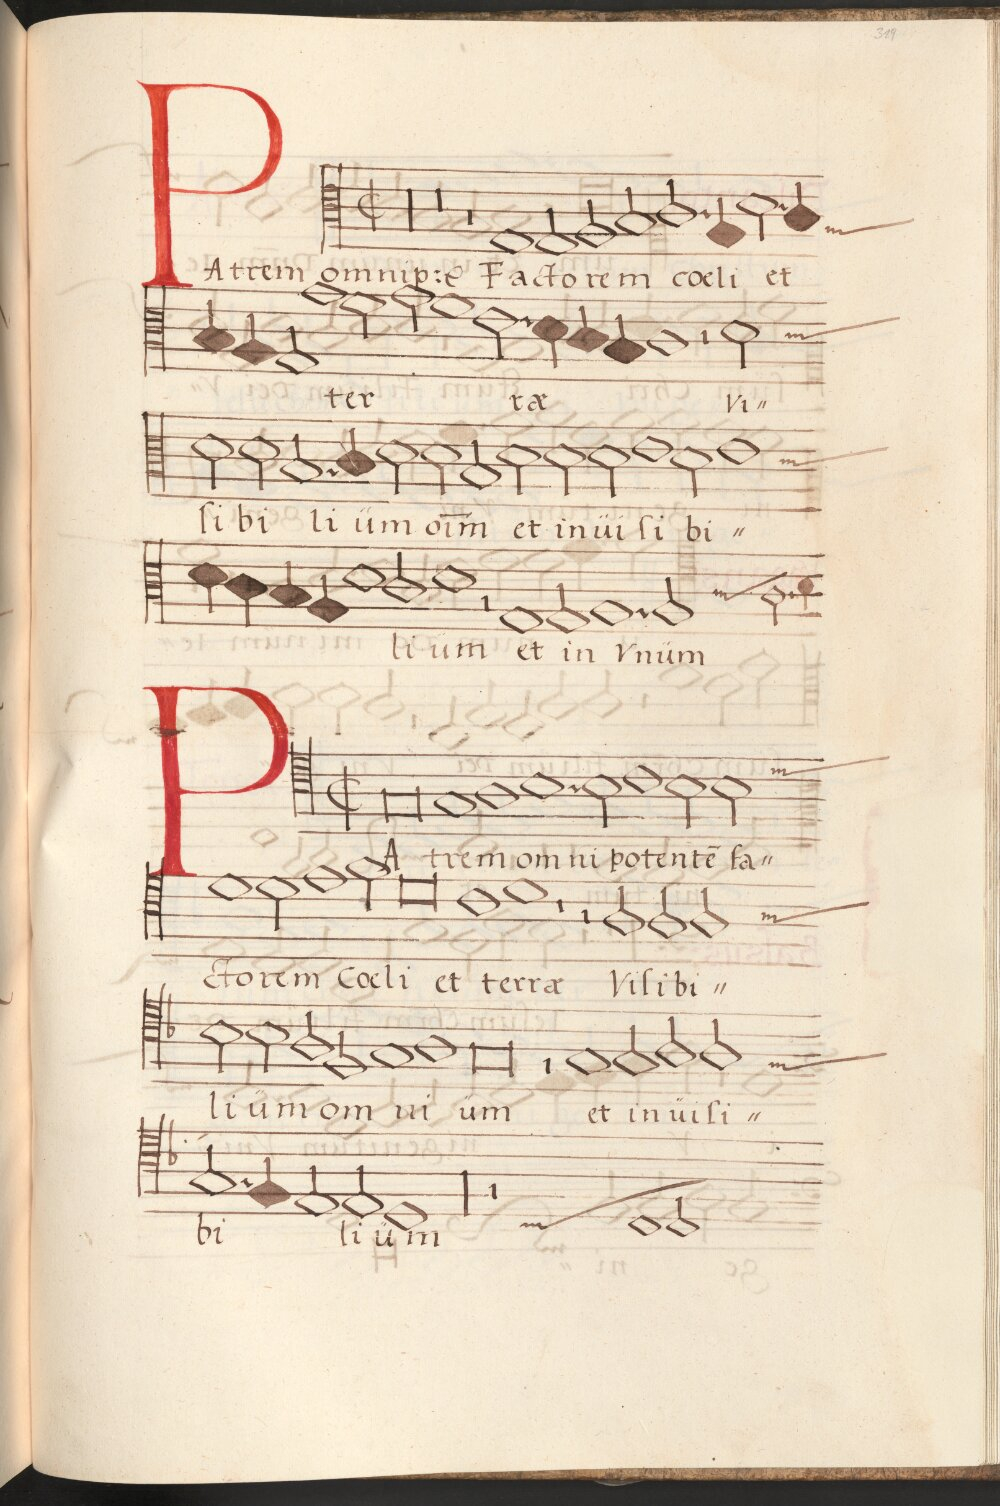 319
PAtrem omnip:t̃e Factorem cœli et
ter ræ Vi〃
sibi li üm oı̄m et inüisi bi〃
li üm et in Vnüm
PA trem omnipotentē fa〃
ctorem Cœli et terræ Visibi〃
liüm om ni üm et inüisi〃
bi li ü m